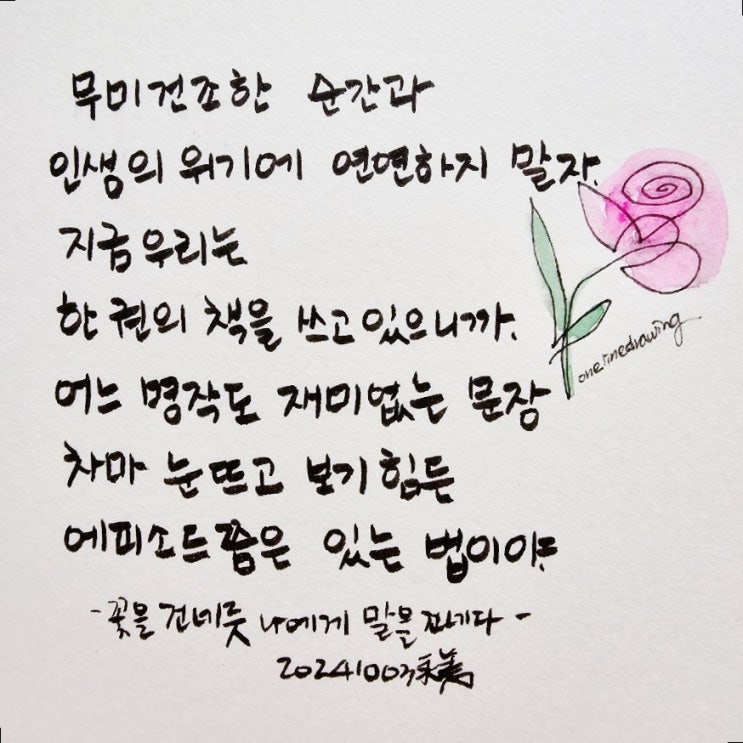 무미건조한 순간과
인생의 위기에 연연하지 말자.
지금 우리는
한 권의 책을 쓰고 있으니까.
어느 명작도 재미없는 문장
차마 눈뜨고 보기 힘든
에피소드쯤은 있는 법이야.
onelinedrawing
-꽃을 건네듯 나에게 말을 건네다-
20241003